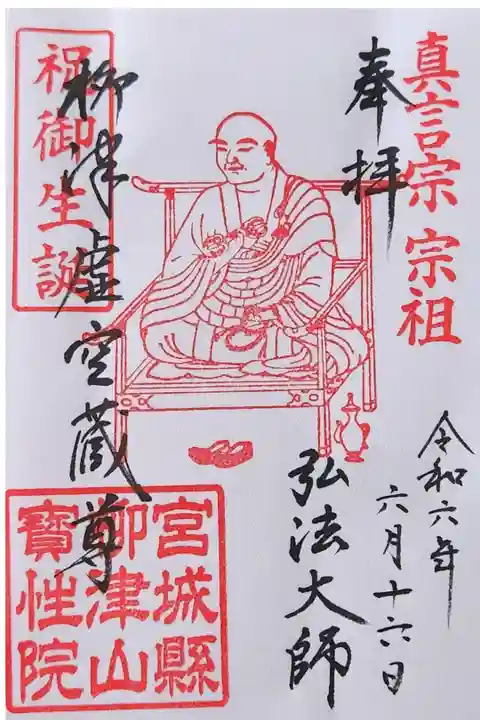 真言宗 宗祖
奉拝
令和六年
六月十六日
弘法大師
祝御生誕
柳津虚空蔵尊
宮城縣
柳津山
寶性院